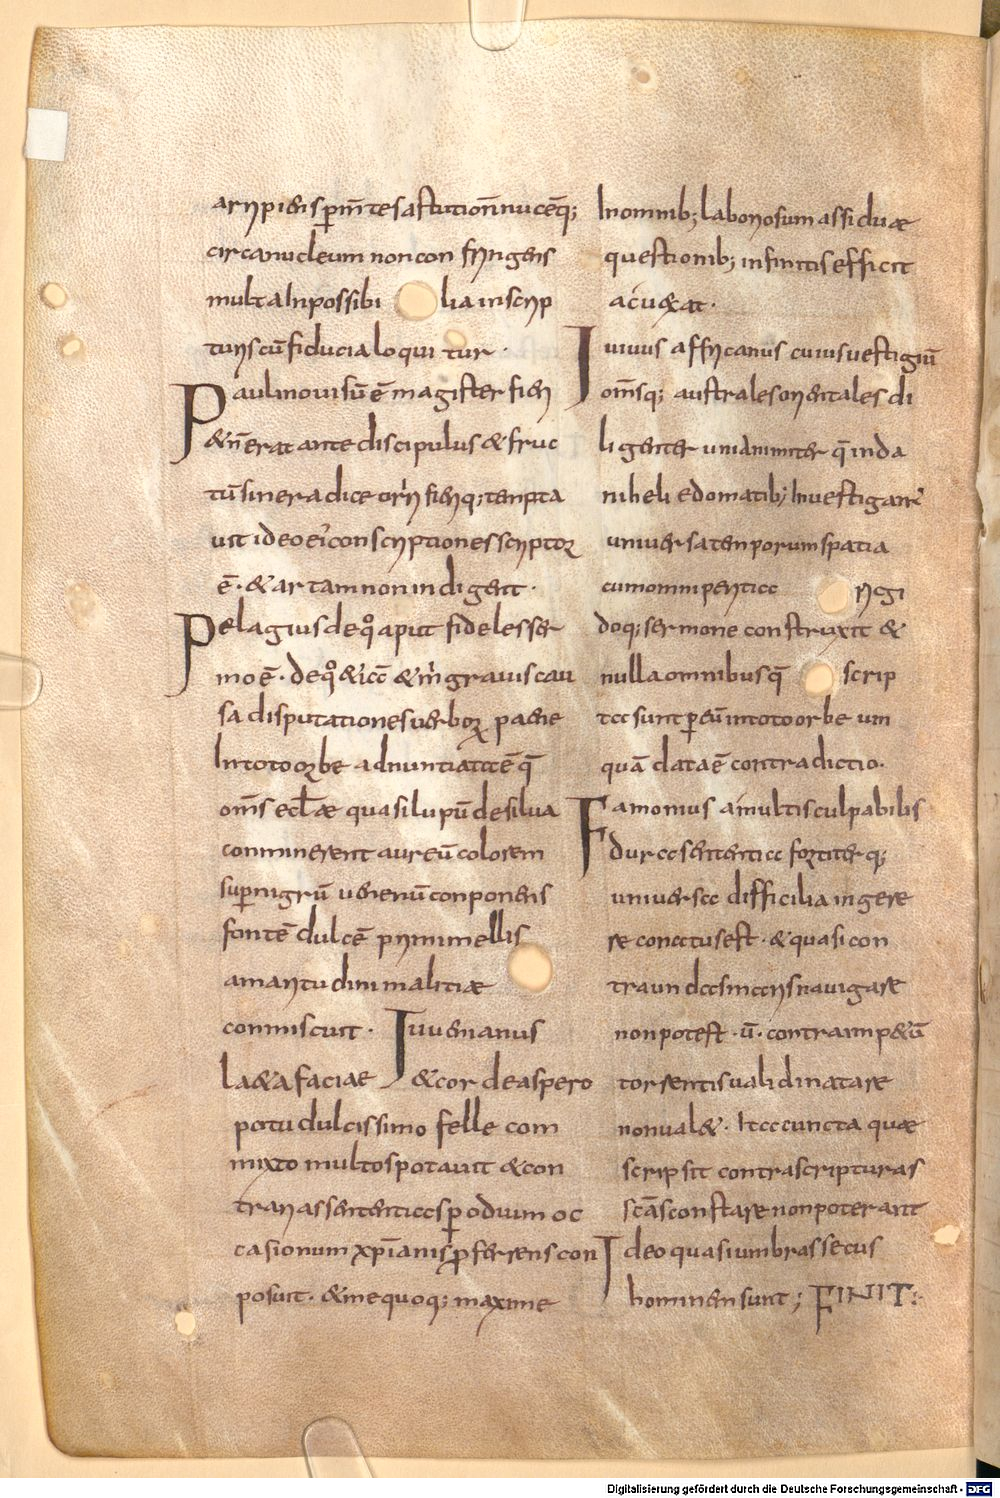 arripiens p̄m̄tes astutioñ nuceq̄;
circa nucleum non confringens
multa Inpossibilia in scrip
turis cū fiducia loquitur ·
Paulino uisū ē magister fieri
& n̄ erat ante discipulus & fruc
tū sine radice fieriq; tenpta
uit ideo conscriptiones scriptor
ē · & artam non indigent ·
Pelagius de q̊ aput fideles ser
mo ē · de q̊ & grauis cau
sa disputationes uerborꝝ paene
In toto orbe adnuntiatae
om̄s ecl̄ae quasi lupū de silua
conminerent aureū colorem
suꝑ nigrū uenenū conponens
fontē dulcē primi mellis
amaritudini malitiae
conmiscuit · Iuuenianus
la&a faciae & corde aspero
potu dulcissimo felle com
mixto multos potauit & con
trarias sententias ꝑ odium oc
casionum xp̄ianis proferens con
posuit · & mequoq; maxime
In omnib; laboriosum assiduae
questionib; infinitis efficit
ac uexat ·
Iuuius affricanus cuius uestigiū
om̄sq; australes orientales di
ligenter unianimiter q̄ in da
niheli edomatib; Inuestigari
uniuersa tenporum spatia
cum omni peritia
doq; sermone construxit &
nulla omnibus q̄ scrip
ta sunt ꝑ eū in toto orbe um
quā data ē contradictio ·
Famonius a multis culpabilis
dura sententia fortiterq;
uniuersa difficilia ingere
re conatus est · & quasi con
tra undas maris nauigare
non potest · ū · contra inp&ū
torrentis ualidi natare
non ual& · Ita cuncta quae
scripsit contra scripturas
sc̄as constare non poterant
Ideo quasi umbras secus
homines sunt ; FINIT :·
Digitalisierung gefördert durch die Deutsche Forschungsgemeinschaft - DFG